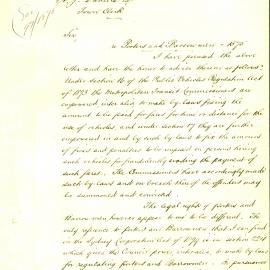 Town Clerk
Sir
re Porters and Barrowmen - 1875
I have perused the above
letter and have the honor to advise thereon as follows:
Under section 16 of the Public Vehicles Regulation Act
of 1873 the Metropolitan Transit Commissioners are
empowered inter alia to make by laws fixing the
amount to be paid for fares for time or distance for the
use of vehicles and under section 17 they are further
empowered in and by such by laws to fix the amount
of fines and penalties to be imposed on persons hiring
such vehicles for fraudulently evading the payment of
such fares. The Commissioners have accordingly made
such by laws and on breach thereof the offenders may
be summoned and convicted.
The legal rights of porters and
Barrow men however appear to me to be different. The
only reference to porters and Barrowmen that I can find
in the Sydney Corporation Act of 1879 is in section
which gives the Council power interalia, to make by laws
for regulating porters and Barrowmen. In pursuance